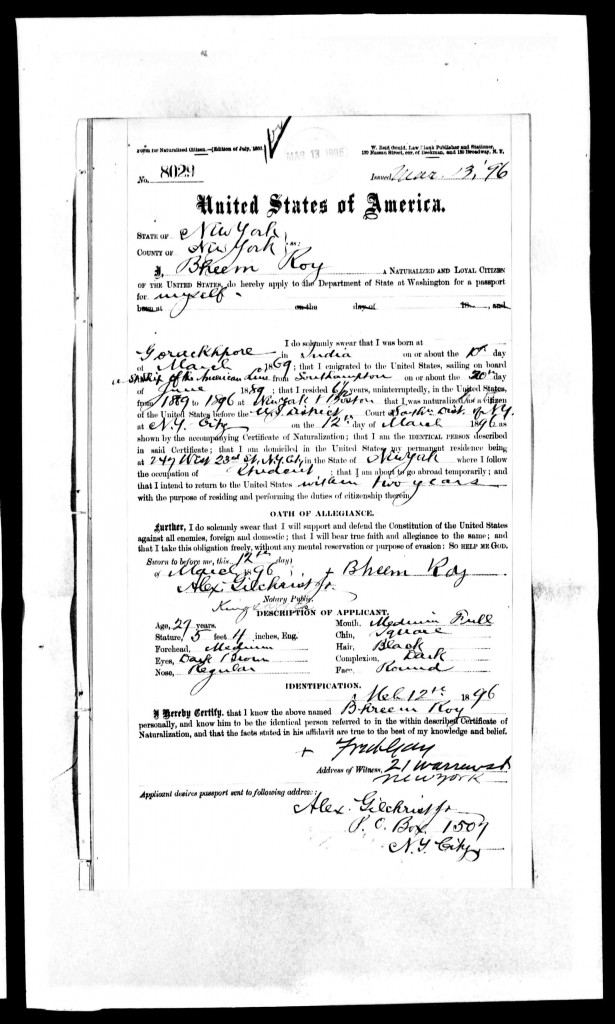 FORM for Naturalized Citizen.—(Edition of July, 1888.)
W. Reid Gould, Law Blank Publisher and Stationer,
139 Nassau Street, cor. of Beekman, and 120 Broadway, N. Y.
MAR 13 1896
No. 8029
Issued Mar. 13, '96
United States of America.
STATE OF New York
COUNTY OF New York } ss:
I, Bheem Roy, A NATURALIZED AND LOYAL CITIZEN
OF THE UNITED STATES, do hereby apply to the Department of State at Washington for a passport
for myself.
born at on the day of 18 , and
I do solemnly swear that I was born at
Goruckhpore in India on or about the 10th day
of March 1869; that I emigrated to the United States, sailing on board
a Ship of the American Line from Southampton on or about the 20th day
of June 1889; that I resided 6 1/2 years, uninterruptedly, in the United States,
from 1889 to 1896 at New York & Boston that I was naturalized as a citizen
of the United States before the U.S. District Court South'n Dist. of N.Y.
at N.Y. City on the 12th day of March 1896 as
shown by the accompanying Certificate of Naturalization; that I am the IDENTICAL PERSON described
in said Certificate; that I am domiciled in the United States my permanent residence being
at 247 West 23rd St. N.Y. City in the State of New York where I follow
the occupation of Student; that I am about to go abroad temporarily; and
that I intend to return to the United States within two years
with the purpose of residing and performing the duties of citizenship therein.
OATH OF ALLEGIANCE.
Further, I do solemnly swear that I will support and defend the Constitution of the United States
against all enemies, foreign and domestic; that I will bear true faith and allegiance to the same; and
that I take this obligation freely, without any mental reservation or purpose of evasion: SO HELP ME GOD.
Sworn to before me, this 12th day
of March 1896 + Bheem Roy
Alex Gilchrist Jr.
Notary Public.
Kings
DESCRIPTION OF APPLICANT.
Age, 27 years.
Stature, 5 feet 4 inches, Eng.
Forehead, Medium
Eyes, Dark Brown
Nose, Regular
Mouth, Medium Full
Chin, Square
Hair, Black
Complexion, Dark
Face, Round
IDENTIFICATION.
Mch 12th 1896
I Hereby Certify, that I know the above named Bheem Roy
personally, and know him to be the identical person referred to in the within described Certificate of
Naturalization, and that the facts stated in his affidavit are true to the best of my knowledge and belief.
+ Fred Gay
Address of Witness, 21 Warren st
New York
Applicant desires passport sent to following address:
Alex. Gilchrist Jr
P. O. Box 1507
N.Y. City